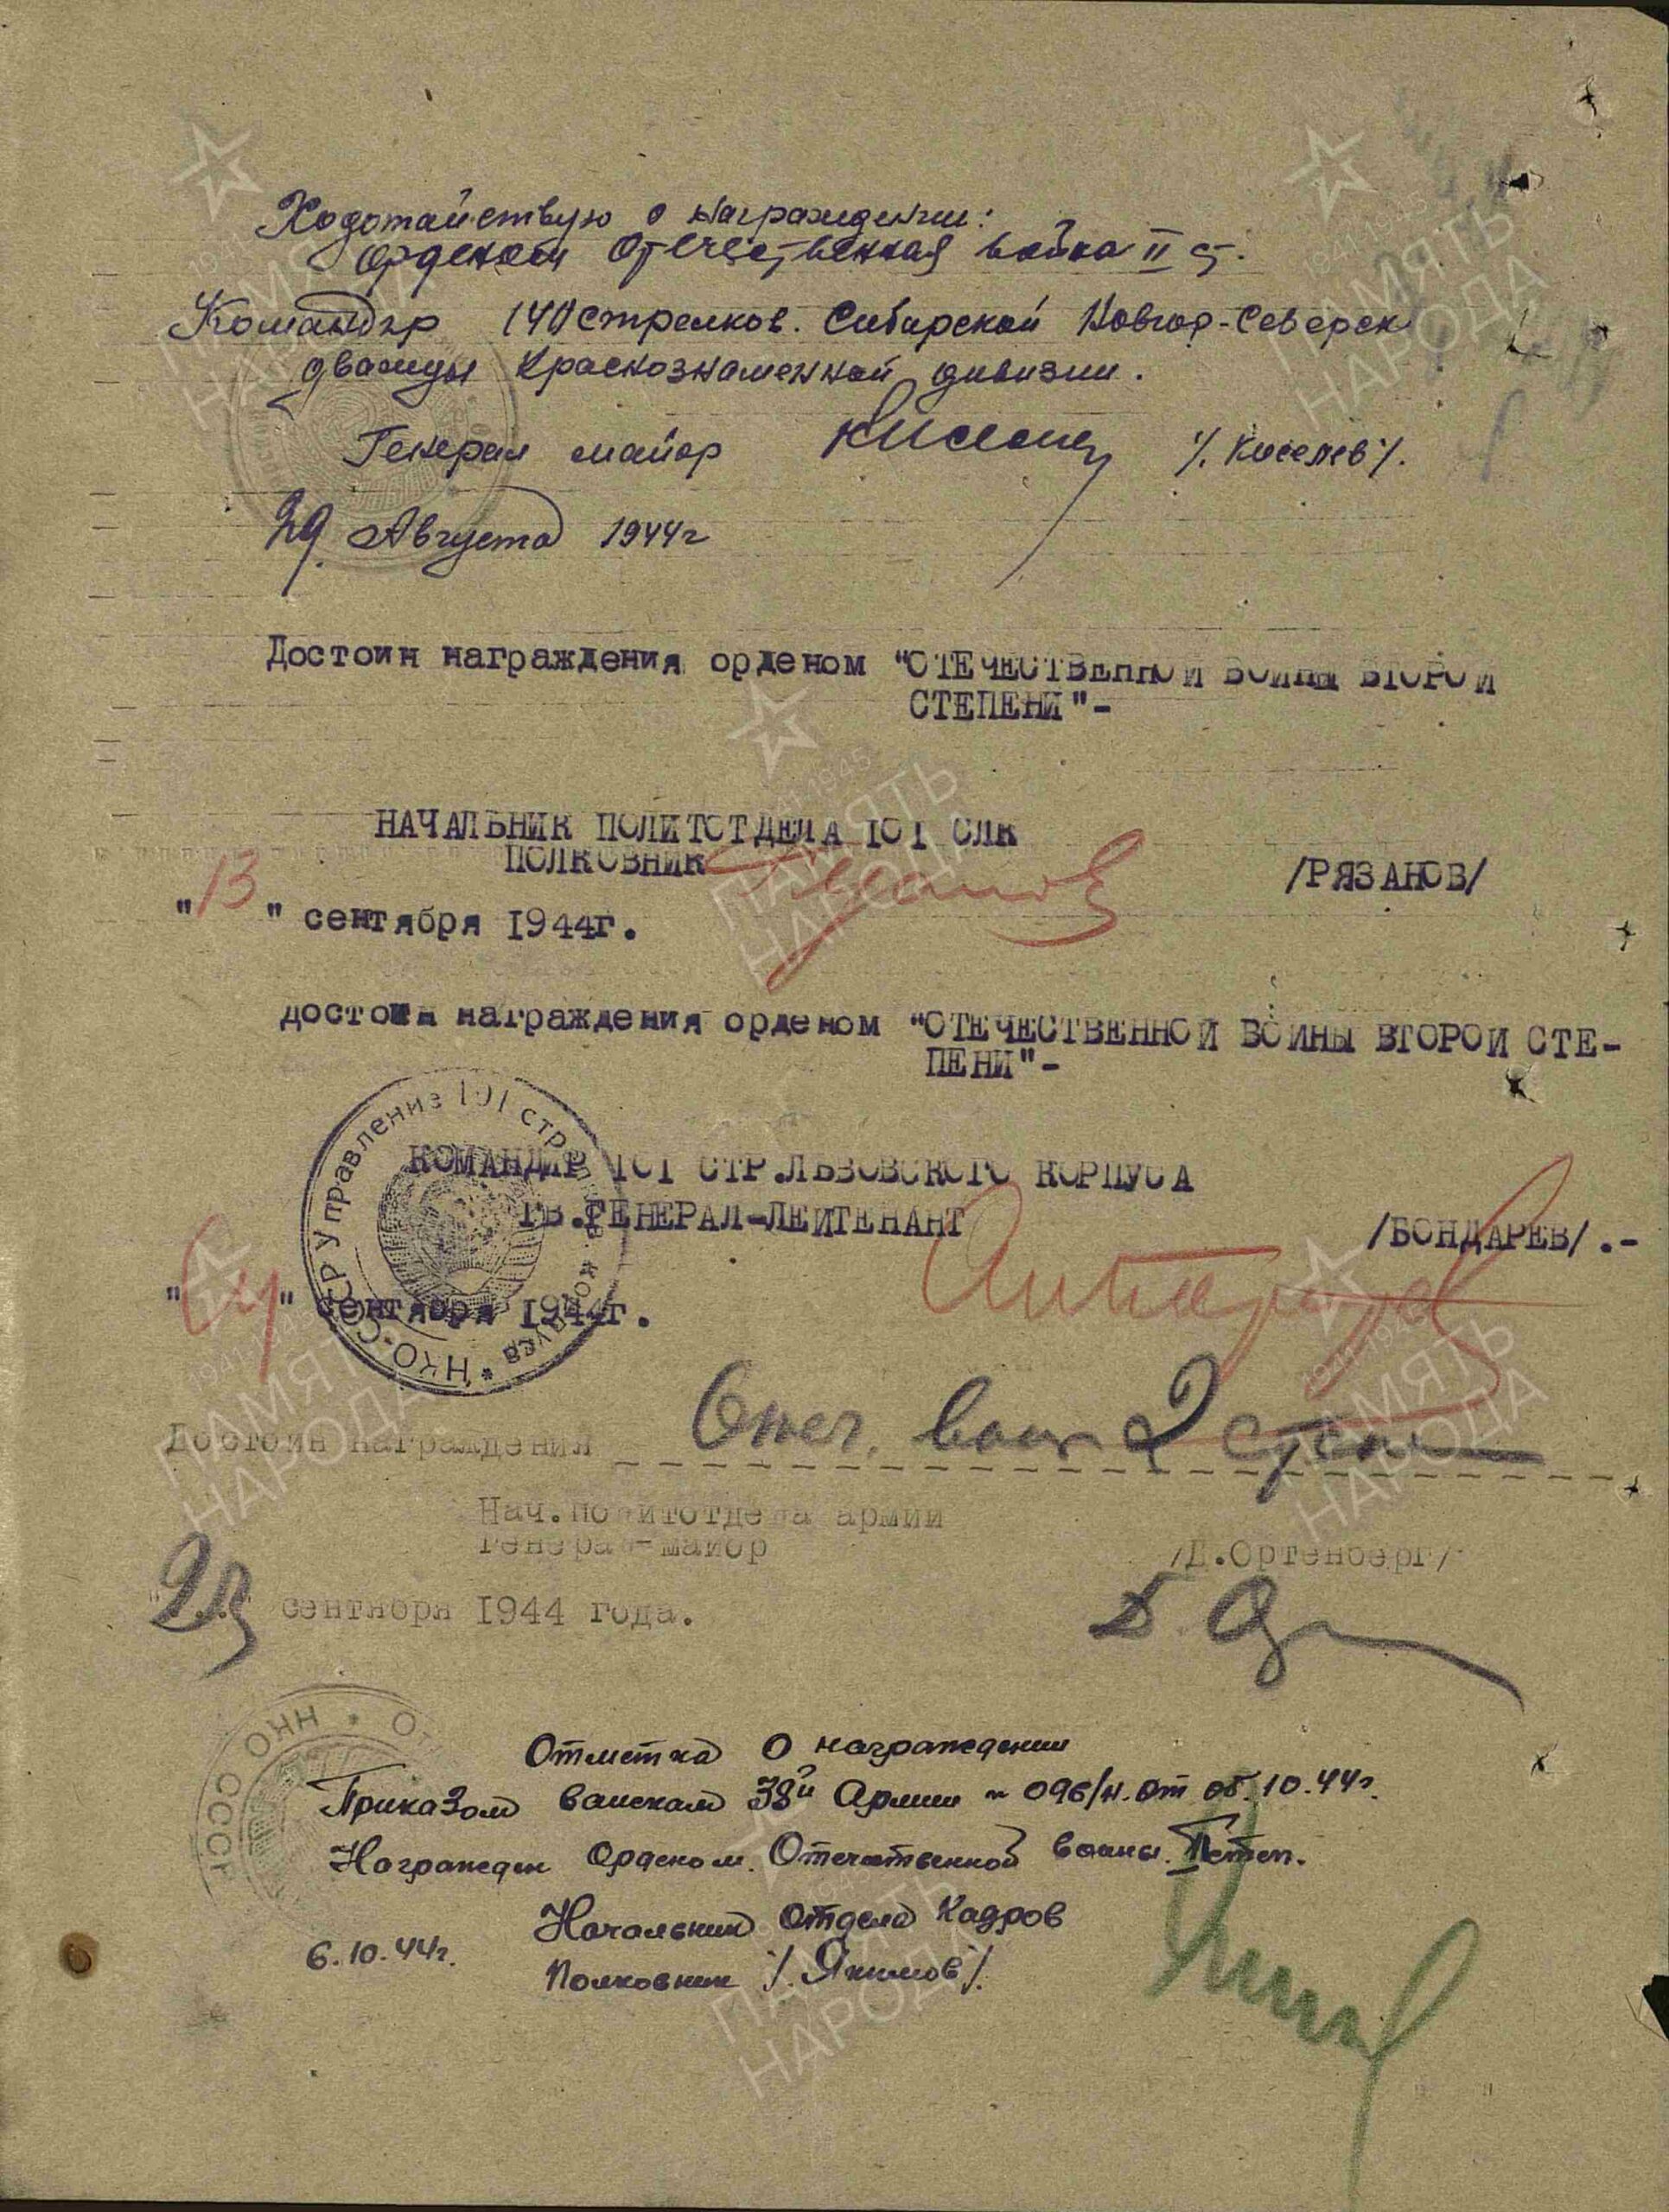 Ходотайствую о награждении:
Орденом Отечественная война II ст.
Командир 140 стрелков. Сибирской Новгор-Северск
дважды Краснознаменной дивизии.
Генерал майор /. Киселев /.
29 Августа 1944г
Достоин награждения орденом "ОТЕЧЕСТВЕННОЙ ВОЙНЫ ВТОРОЙ
СТЕПЕНИ"-
НАЧАЛЬНИК ПОЛИТОТДЕЛА 101 СЛК
ПОЛКОВНИК /РЯЗАНОВ/
"13" сентября 1944г.
достоин награждения орденом "ОТЕЧЕСТВЕННОЙ ВОЙНЫ ВТОРОЙ СТЕ-
ПЕНИ"-
КОМАНДИР 101 СТР.ЛЬВОВСКОГО КОРПУСА
ГВ.ГЕНЕРАЛ-ЛЕЙТЕНАНТ /БОНДАРЕВ/.-
" " сентября 1944г.
НКО-СССР Управление 101 стр корпуса
Достоин награждения Отеч. войн 2 степ
Нач.политотдела армии
Генерал-майор /Д.Ортенберг/
сентября 1944 года.
НКО СССР
Отметка о награждении
Приказом войскам 38й Армии № 096/н. от 05.10.44г.
Награжден Орденом Отечественной войны II степ.
Начальник отдела Кадров
6.10.44г. Полковник /. Якимов /.
1941 1945
ПАМЯТЬ
НАРОДА
1941 1945
ПАМЯТЬ
НАРОДА
1941 1945
ПАМЯТЬ
НАРОДА
1941 1945
ПАМЯТЬ
НАРОДА
1941 1945
ПАМЯТЬ
НАРОДА
ПАМЯТЬ
НАРОДА